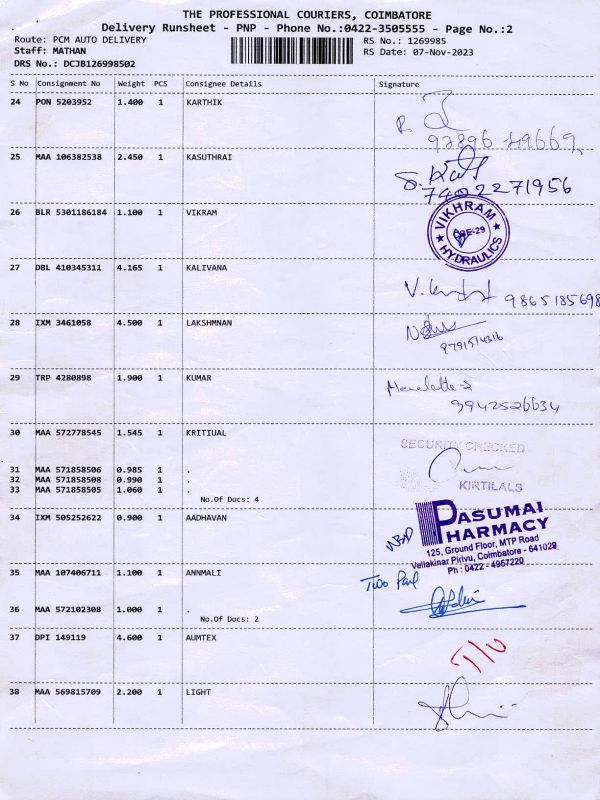 THE PROFESSIONAL COURIERS, COIMBATORE
Delivery Runsheet - PNP - Phone No.:0422-3505555 - Page No.:2
Route: PCM AUTO DELIVERY RS No.: 1269985
Staff: MATHAN RS Date: 07-Nov-2023
DRS No.: DCJB126998502
S No Consignment No Weight PCS Consignee Details Signature
24 PON 5203952 1.400 1 KARTHIK
25 MAA 106382538 2.450 1 KASUTHRAI
7402271956
26 BLR 5301186184 1.100 1 VIKRAM
VIKHRAM
CBE-29
HYDRAULICS
27 DBL 410345311 4.165 1 KALIVANA
9865185698
28 IXM 3461058 4.500 1 LAKSHMNAN
29 TRP 4280898 1.900 1 KUMAR
9942526634
30 MAA 572778545 1.545 1 KRITIUAL
SECURITY CHECKED
31 MAA 571858506 0.985 1 .
32 MAA 571858508 0.990 1 .
KIRTILALS
33 MAA 571858505 1.060 1 .
No.Of Docs: 4
34 IXM 505252622 0.900 1 AADHAVAN
PASUMAI
PHARMACY
125, Ground Floor, MTP Road
Vellakinar Pirivu, Coimbatore - 641029
Ph : 0422 - 4957220
35 MAA 107406711 1.100 1 ANNMALI
36 MAA 572102308 1.000 1 .
No.Of Docs: 2
37 DPI 149119 4.600 1 AUMTEX
38 MAA 569815709 2.200 1 LIGHT